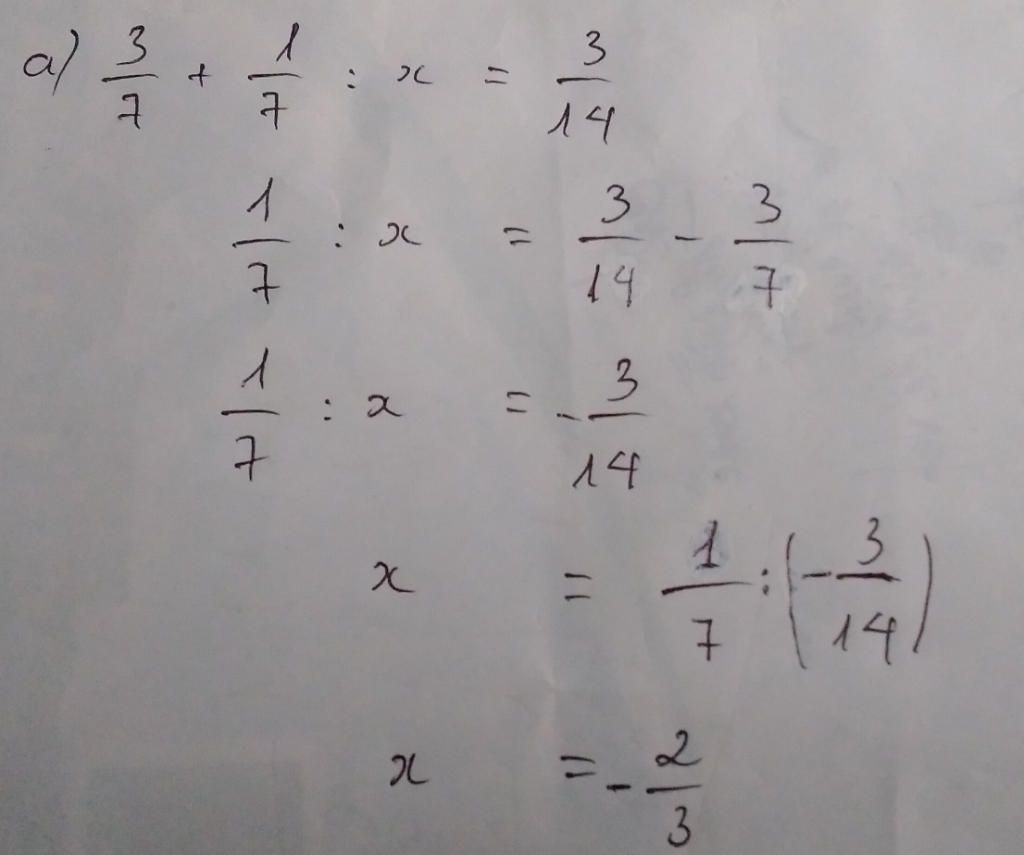 a) 3/7 + 1/7 : x = 3/14
1/7 : x = 3/14 - 3/7
1/7 : x = -3/14
x = 1/7 : (-3/14)
x = -2/3